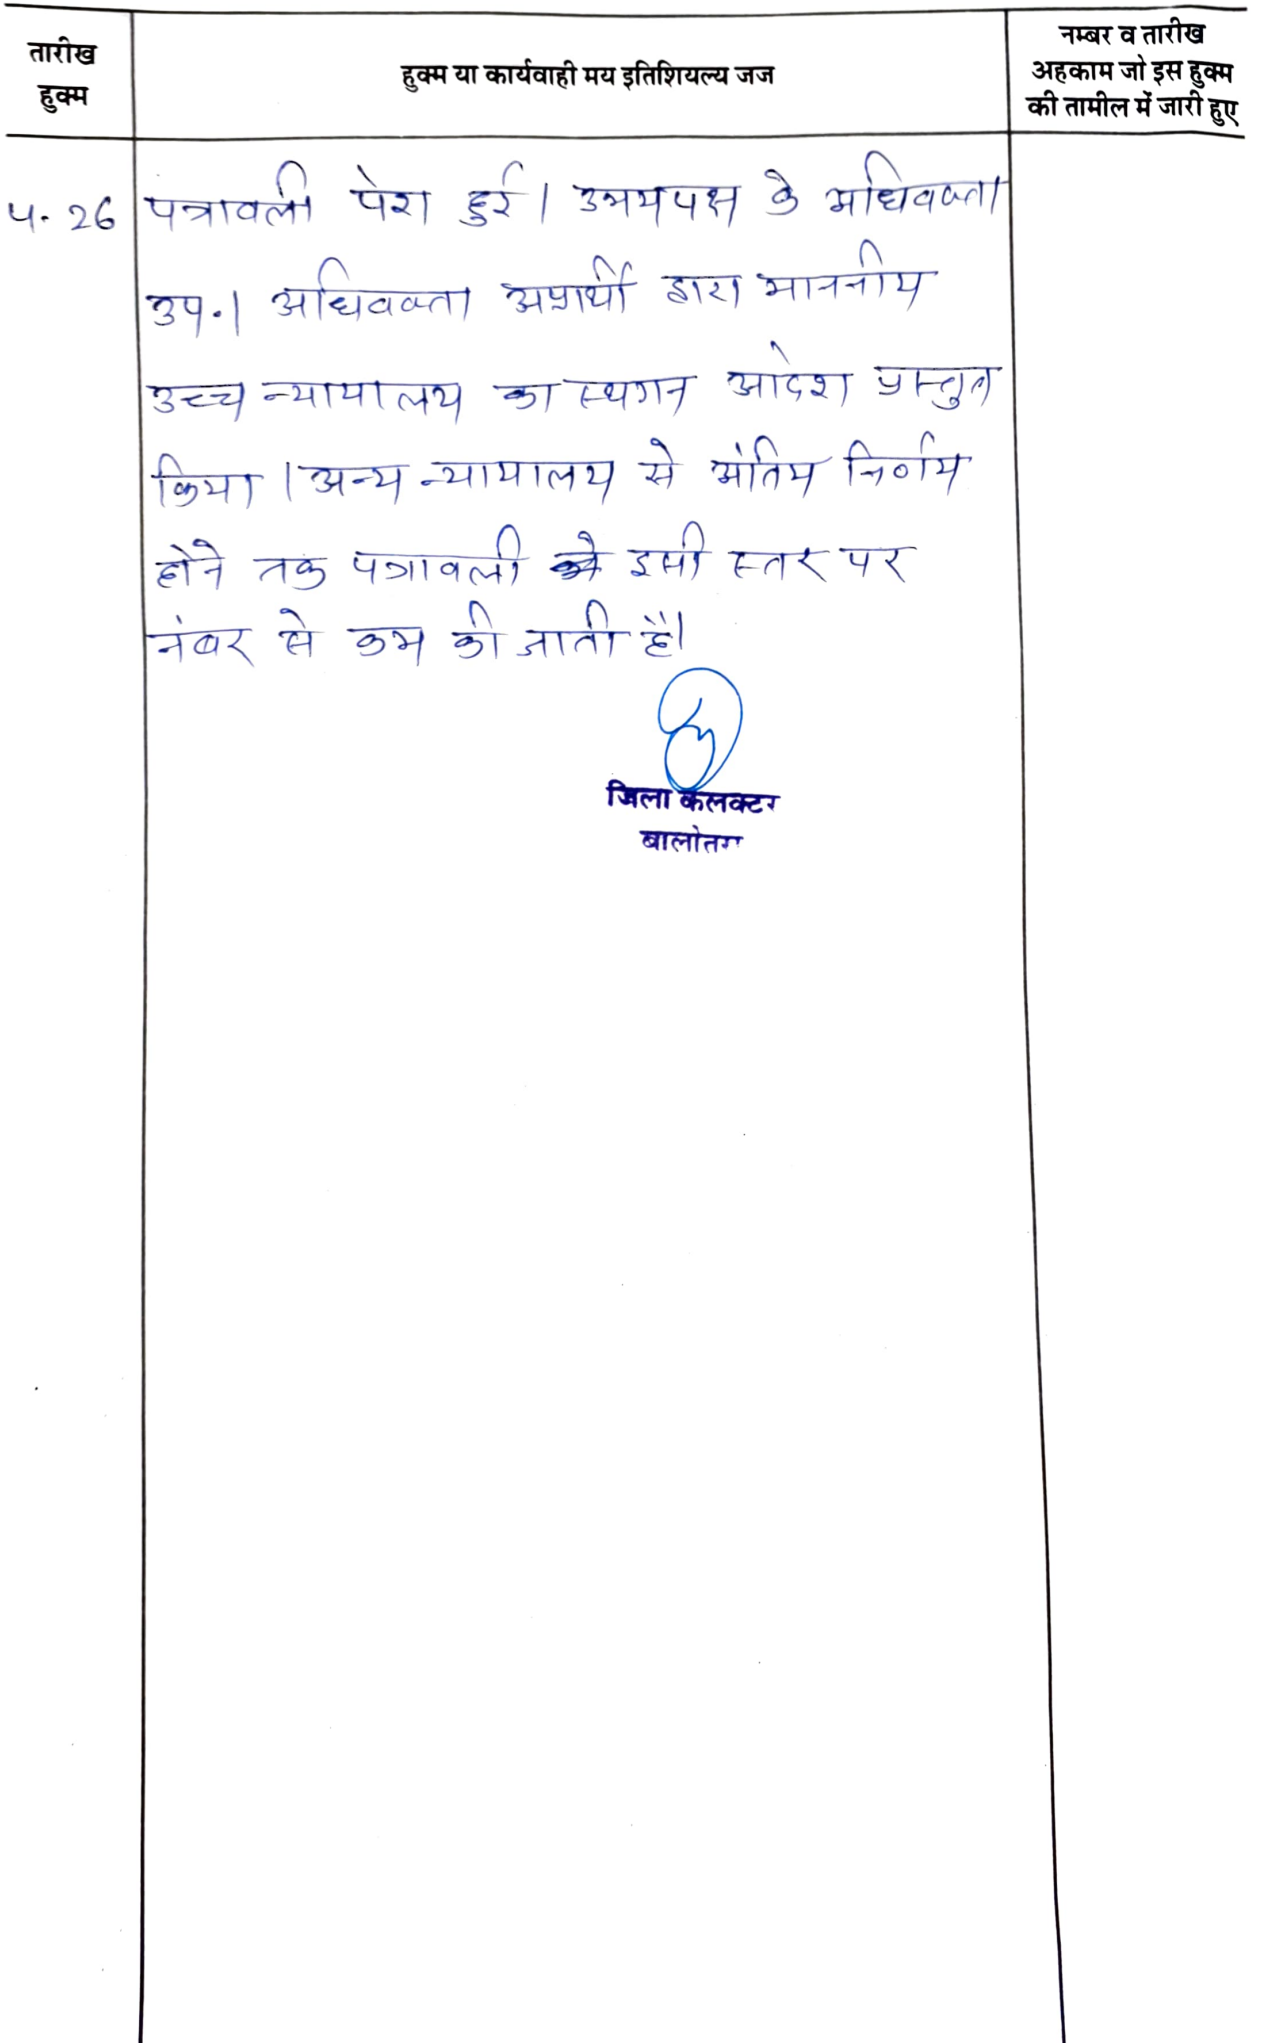 तारीख
हुक्म
हुक्म या कार्यवाही मय इतिशियल्य जज
नम्बर व तारीख
अहकाम जो इस हुक्म
की तामील में जारी हुए
4.26 पत्रावली पेश हुई। उभयपक्ष के अधिवक्ता
उप.। अधिवक्ता अप्रार्थी द्वारा माननीय
उच्च न्यायालय का स्थगन आदेश प्रस्तुत
किया। अन्य न्यायालय से अंतिम निर्णय
होने तक पत्रावली को इसी स्तर पर
नंबर से कम की जाती है।
जिला कलक्टर
बालोतरा